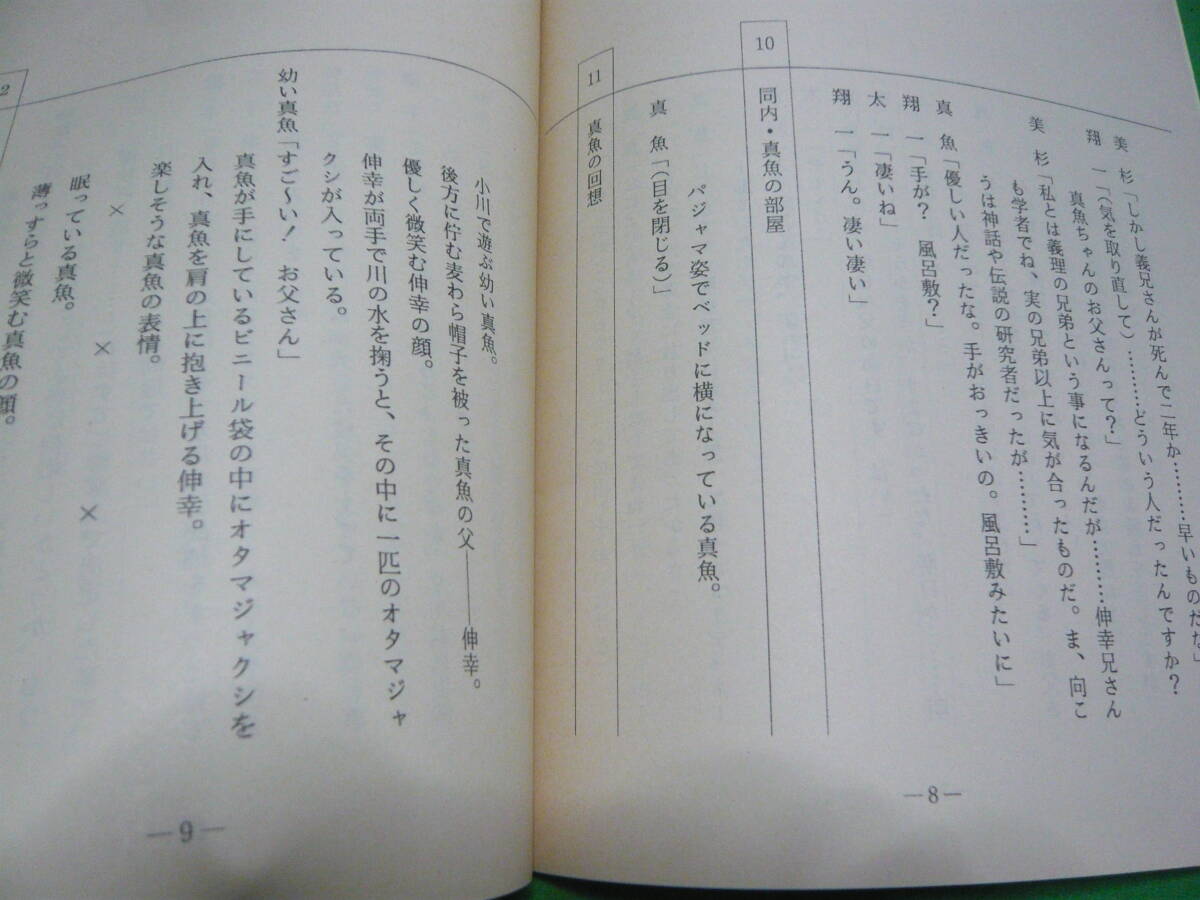 美 杉「しかし義兄さんが死んで二年か………早いものだな」
翔 一「（気を取り直して）………どういう人だったんですか？
真魚ちゃんのお父さんって？」
美 杉「私とは義理の兄弟という事になるんだが………伸幸兄さん
も学者でね、実の兄弟以上に気が合ったものだ。ま、向こ
うは神話や伝説の研究者だったが………」
真 魚「優しい人だったな。手がおっきいの。風呂敷みたいに」
翔 一「手が？ 風呂敷？」
太 一「凄いね」
翔 一「うん。凄い凄い」
10 同内・真魚の部屋
パジャマ姿でベッドに横になっている真魚。
真 魚「（目を閉じる）」
11 真魚の回想
―8―
小川で遊ぶ幼い真魚。
後方に佇む麦わら帽子を被った真魚の父――伸幸。
優しく微笑む伸幸の顔。
伸幸が両手で川の水を掬うと、その中に一匹のオタマジャ
クシが入っている。
幼い真魚「すご～い！ お父さん」
真魚が手にしているビニール袋の中にオタマジャクシを
入れ、真魚を肩の上に抱き上げる伸幸。
楽しそうな真魚の表情。
× × ×
眠っている真魚。
薄っすらと微笑む真魚の顔。
2
―9―